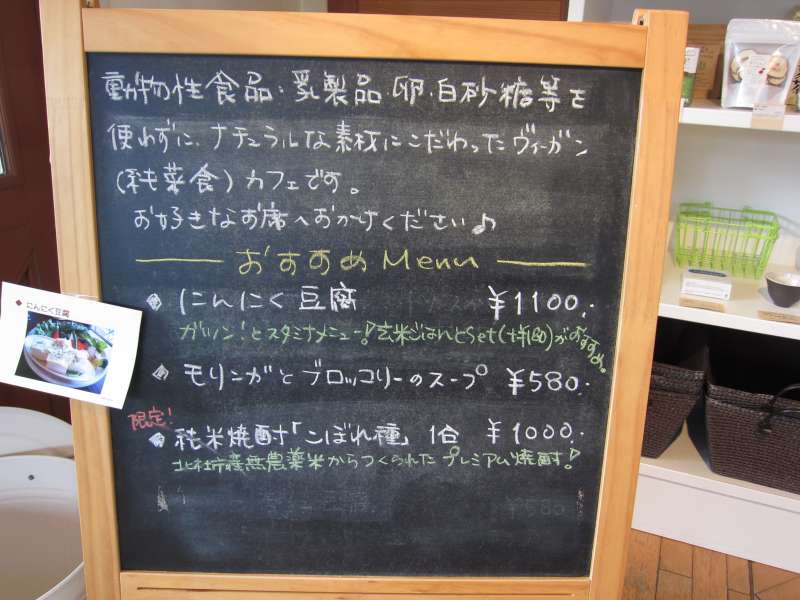 動物性食品・乳製品・卵・白砂糖等を
使わずに、ナチュラルな素材にこだわったヴィーガン
(純菜食)カフェです。
お好きなお席へおかけください♪
おすすめMenu
にんにく豆腐 ¥1100.-
ガツン!とスタミナメニュー!玄米ごはんとSet(+¥150)がおすすめ。
モリンガとブロッコリーのスープ ¥580.-
限定!
純米焼酎「こぼれ種」1合 ¥1000.-
北杜産無農薬米からつくられたプレミアム焼酎!
にんにく豆腐